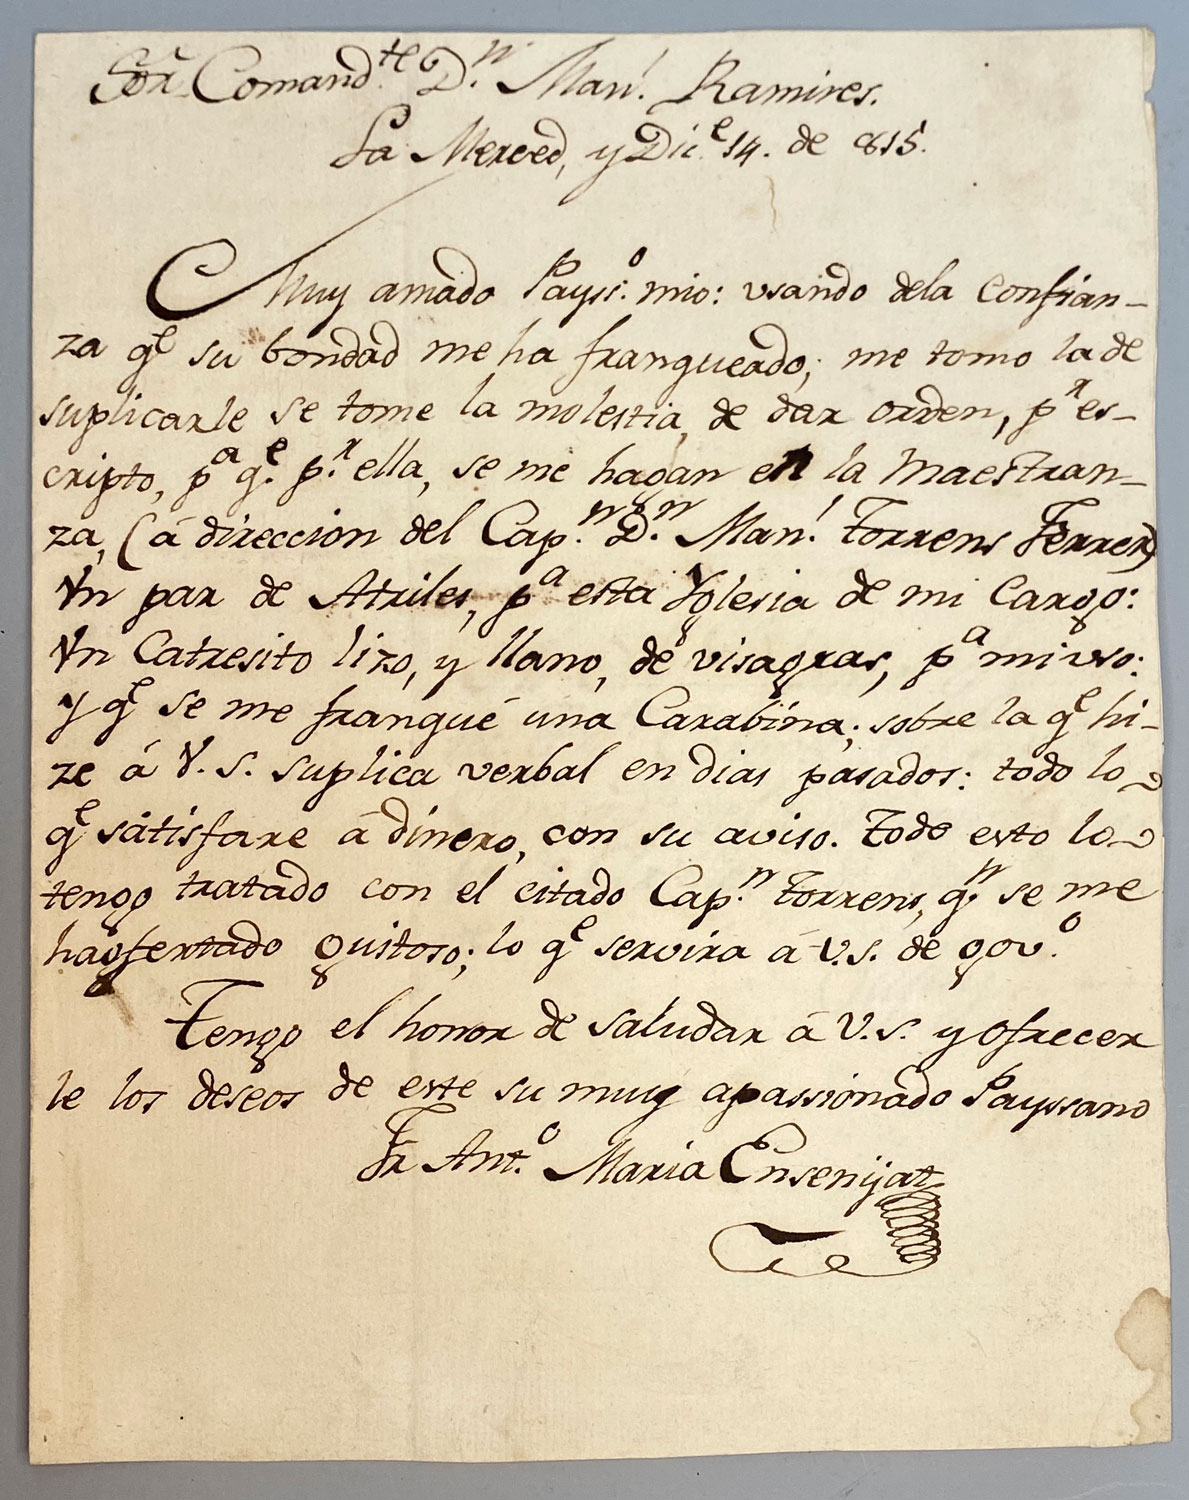 Sor. Comand.te D.n Man.l Ramires.
La Merced, y Dic.e 14. de 815.
Muy amado Payss.o mio: usando dela confian-
za q.e su bondad me ha franqueado; me tomo la de
suplicarle se tome la molestia, de dar orden, p.r es-
cripto, p.a q.e p.r ella, se me hagan en la Maestran-
za, (á direccion del Cap.n D.n Man.l Torrens Ferrer)
Vn par de Atriles, p.a esta Yglesia de mi Cargo:
Vn Catresito lizo, y llano, de visagras, p.a mi uso:
y q.e se me franqué una Carabina; sobre la q.e hi-
ze á V. S. suplica verbal en dias pasados: todo lo
q.e satisfare á dinero, con su aviso. Todo esto lo
tengo tratado con el citado Cap.n Torrens, q.n se me
ha ofertado gustoso; lo q.e servira á V. S. de gov.o
Tengo el honor de saludar á V. S. y ofrecer
le los deseos de este su muy apassionado Payssano
Fr Ant.o Maria Ensenijat